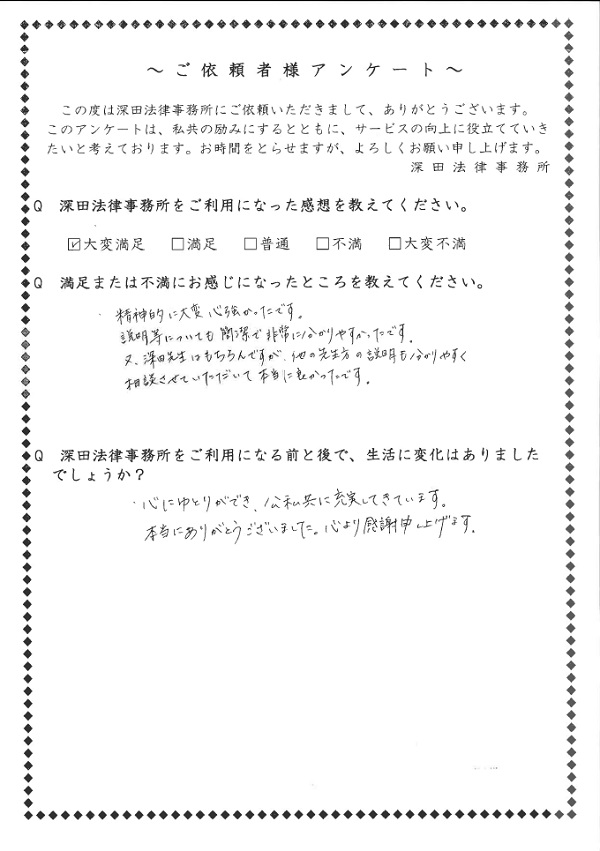 ～ご依頼者様アンケート～
この度は深田法律事務所にご依頼いただきまして、ありがとうございます。
このアンケートは、私共の励みにするとともに、サービスの向上に役立てていき
たいと考えております。お時間をとらせますが、よろしくお願い申し上げます。
深田法律事務所
Q 深田法律事務所をご利用になった感想を教えてください。
☑大変満足 □満足 □普通 □不満 □大変不満
Q 満足または不満にお感じになったところを教えてください。
・精神的に大変心強かったです。
説明等についても簡潔で非常に分かりやすかったです。
又、深田先生はもちろんですが、他の先生方の説明も分かりやすく
相談させていただいて本当に良かったです。
Q 深田法律事務所をご利用になる前と後で、生活に変化はありました
でしょうか？
・心にゆとりができ、公私共に充実してきています。
本当にありがとうございました。心より感謝申し上げます。